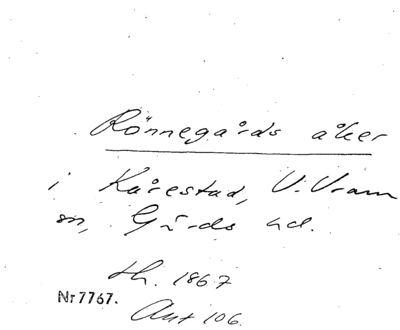 Rönnegårds åker
i Kårestad, V. Vram
sn, Gärds hd.
th. 1867
Nr 7767.
Ant 106.